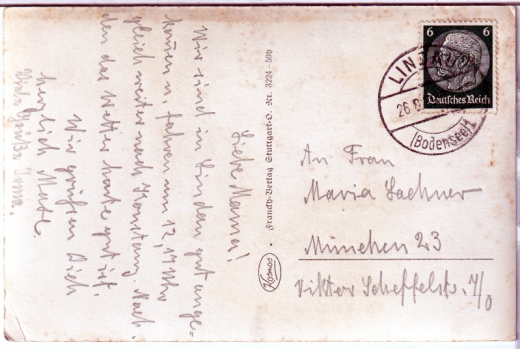 Liebe Mama!
Wir sind in Lindau gut ange-
kommen u. fahren um 12,17 Uhr
gleich weiter nach Konstanz. Nach-
dem das Wetter heute gut ist.
Wir grüßen Dich
herzlich
Viele Grüße
Franckh-Verlag Stuttgart-O. Nr. 3224-590
Kosmos
6 6
Deutsches Reich
LINDAU
26.
(Bodensee)
An Frau
Maria Lachner
München 23
Viktor Scheffelstr. 7/0